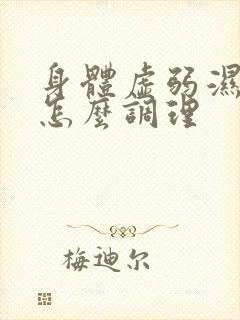 身體虛弱濕
怎麼調理
梅迪尔